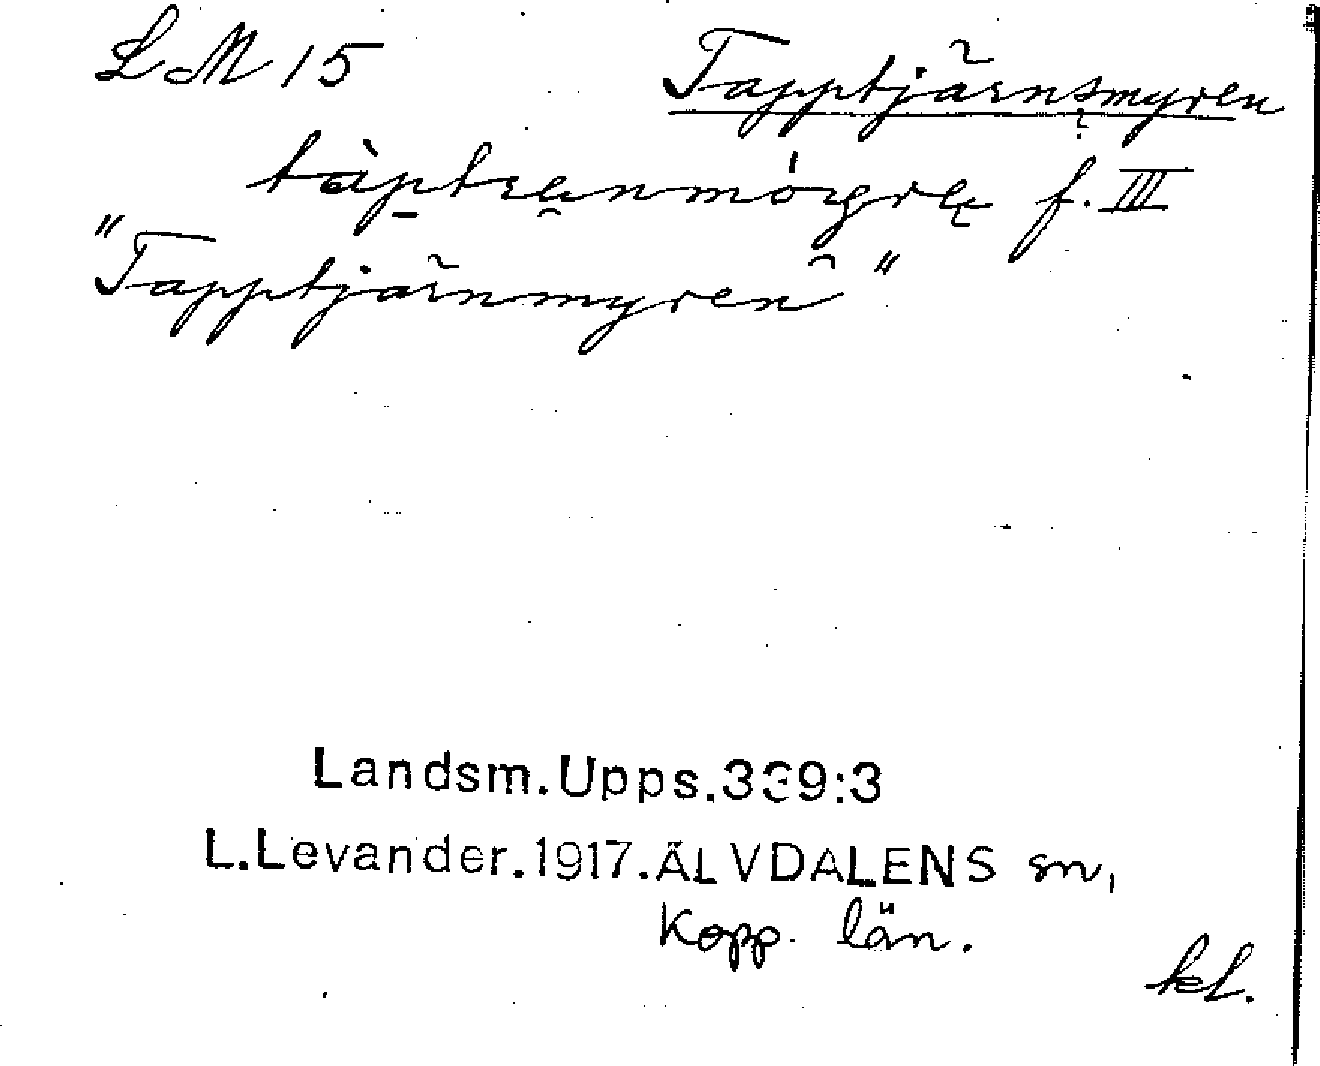 LM 15 Tapptjärnsmyren
f. III
"Tapptjärnmyren"
Landsm.Upps.339:3
L.Levander.1917.ÄLVDALENS sn,
Kopp. län.
kL.